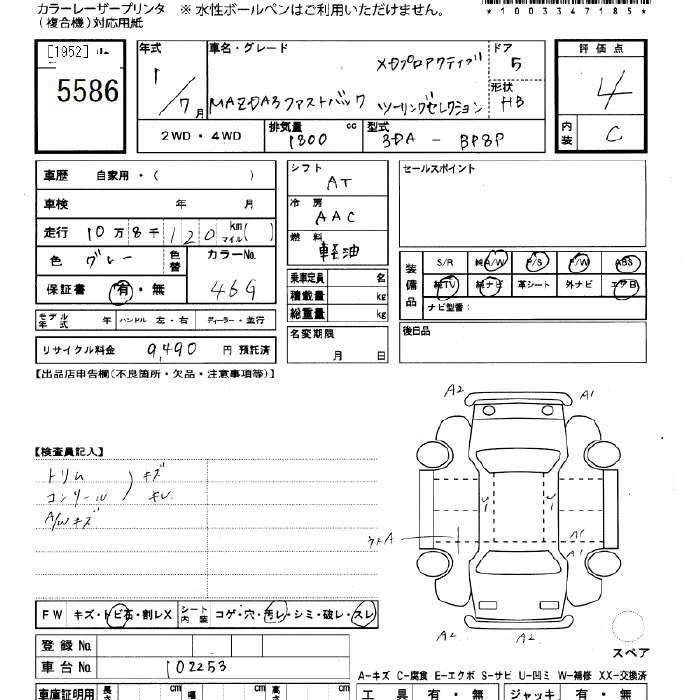 カラーレーザープリンタ ※ 水性ボールペンはご利用いただけません。
(複合機)対応用紙
*1003347185*
[1952]
5586
年式 1/7月
車名・グレード
XDプロアクティブ
MAZDA3ファストバック ツーリングセレクション
ドア 5
形状 HB
評価点 4
内装 C
2WD・4WD
排気量 1800 cc
型式 3DA - BP8P
車歴 自家用・( )
車検 年 月
走行 10万8千120 km マイル( )
色 グレー 色替 カラーNo. 46G
保証書 有・無
モデル年式 年 ハンドル 左・右 ディーラー・並行
リサイクル料金 9,490 円 預託済
シフト AT
冷房 AAC
燃料 軽油
乗車定員 名
積載量 kg
総重量 kg
名変期限 月 日
セールスポイント
装備品 S/R 純A/W P/S P/W ABS
純TV 純ナビ 革シート 外ナビ エアB
ナビ型番:
後日品
【出品店申告欄(不良箇所・欠品・注意事項等)】
【検査員記入】
トリム キズ
コンソール キレ
A/Wキズ
A2 A1
A1
A1
A2 A2
スペア
FW キズ・トビ石・割レX シート内装 コゲ・穴・汚レ・シミ・破レ・スレ
登録No.
車台No. 102253
A-キズ C-腐食 E-エクボ S-サビ U-凹ミ W-補修 XX-交換済
車庫証明用 長さ cm 幅 cm 高さ cm
工具 有・無 ジャッキ 有・無